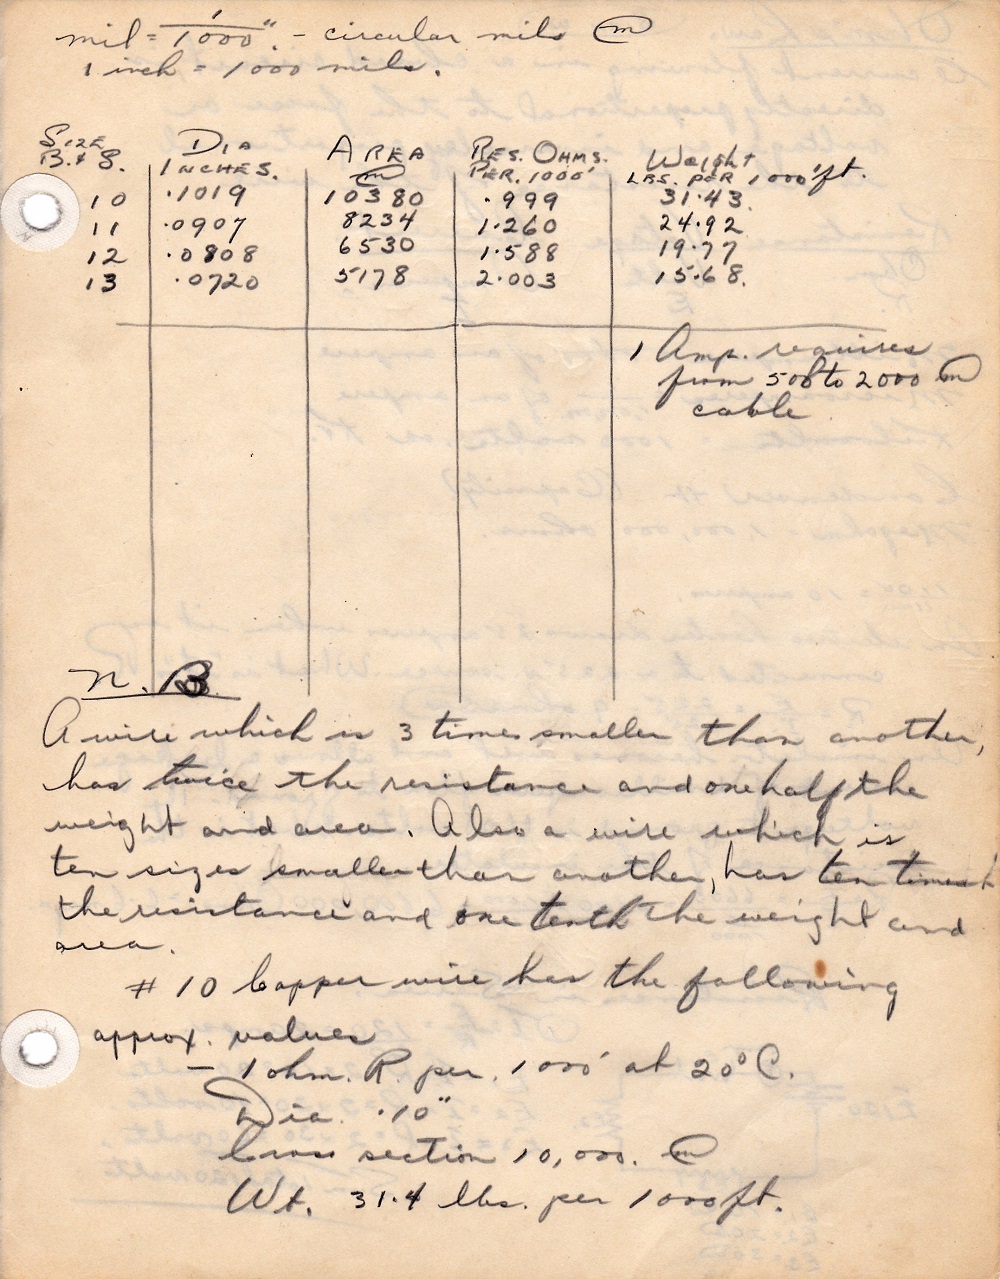 mil = 1/1000". - circular mils (m)
1 inch = 1000 mils.
SIZE B.&S. | DIA INCHES. | AREA (m) | RES. OHMS. PER. 1000' | Weight LBS. PER 1000'ft.
10 | .1019 | 10380 | .999 | 31.43.
11 | .0907 | 8234 | 1.260 | 24.92
12 | .0808 | 6530 | 1.588 | 19.77
13 | .0720 | 5178 | 2.003 | 15.68.
1 Amp. requires
from 500 to 2000 (m)
cable
N.B.
A wire which is 3 times smaller than another,
has twice the resistance and one half the
weight and area. Also a wire which is
ten sizes smaller than another, has ten times
the resistance and one tenth the weight and
area.
#10 Copper wire has the following
approx. values
- 1 ohm. R. per. 1000' at 20°C.
Dia. .10"
Cross section 10,000. (m)
Wt. 31.4 lbs. per 1000ft.